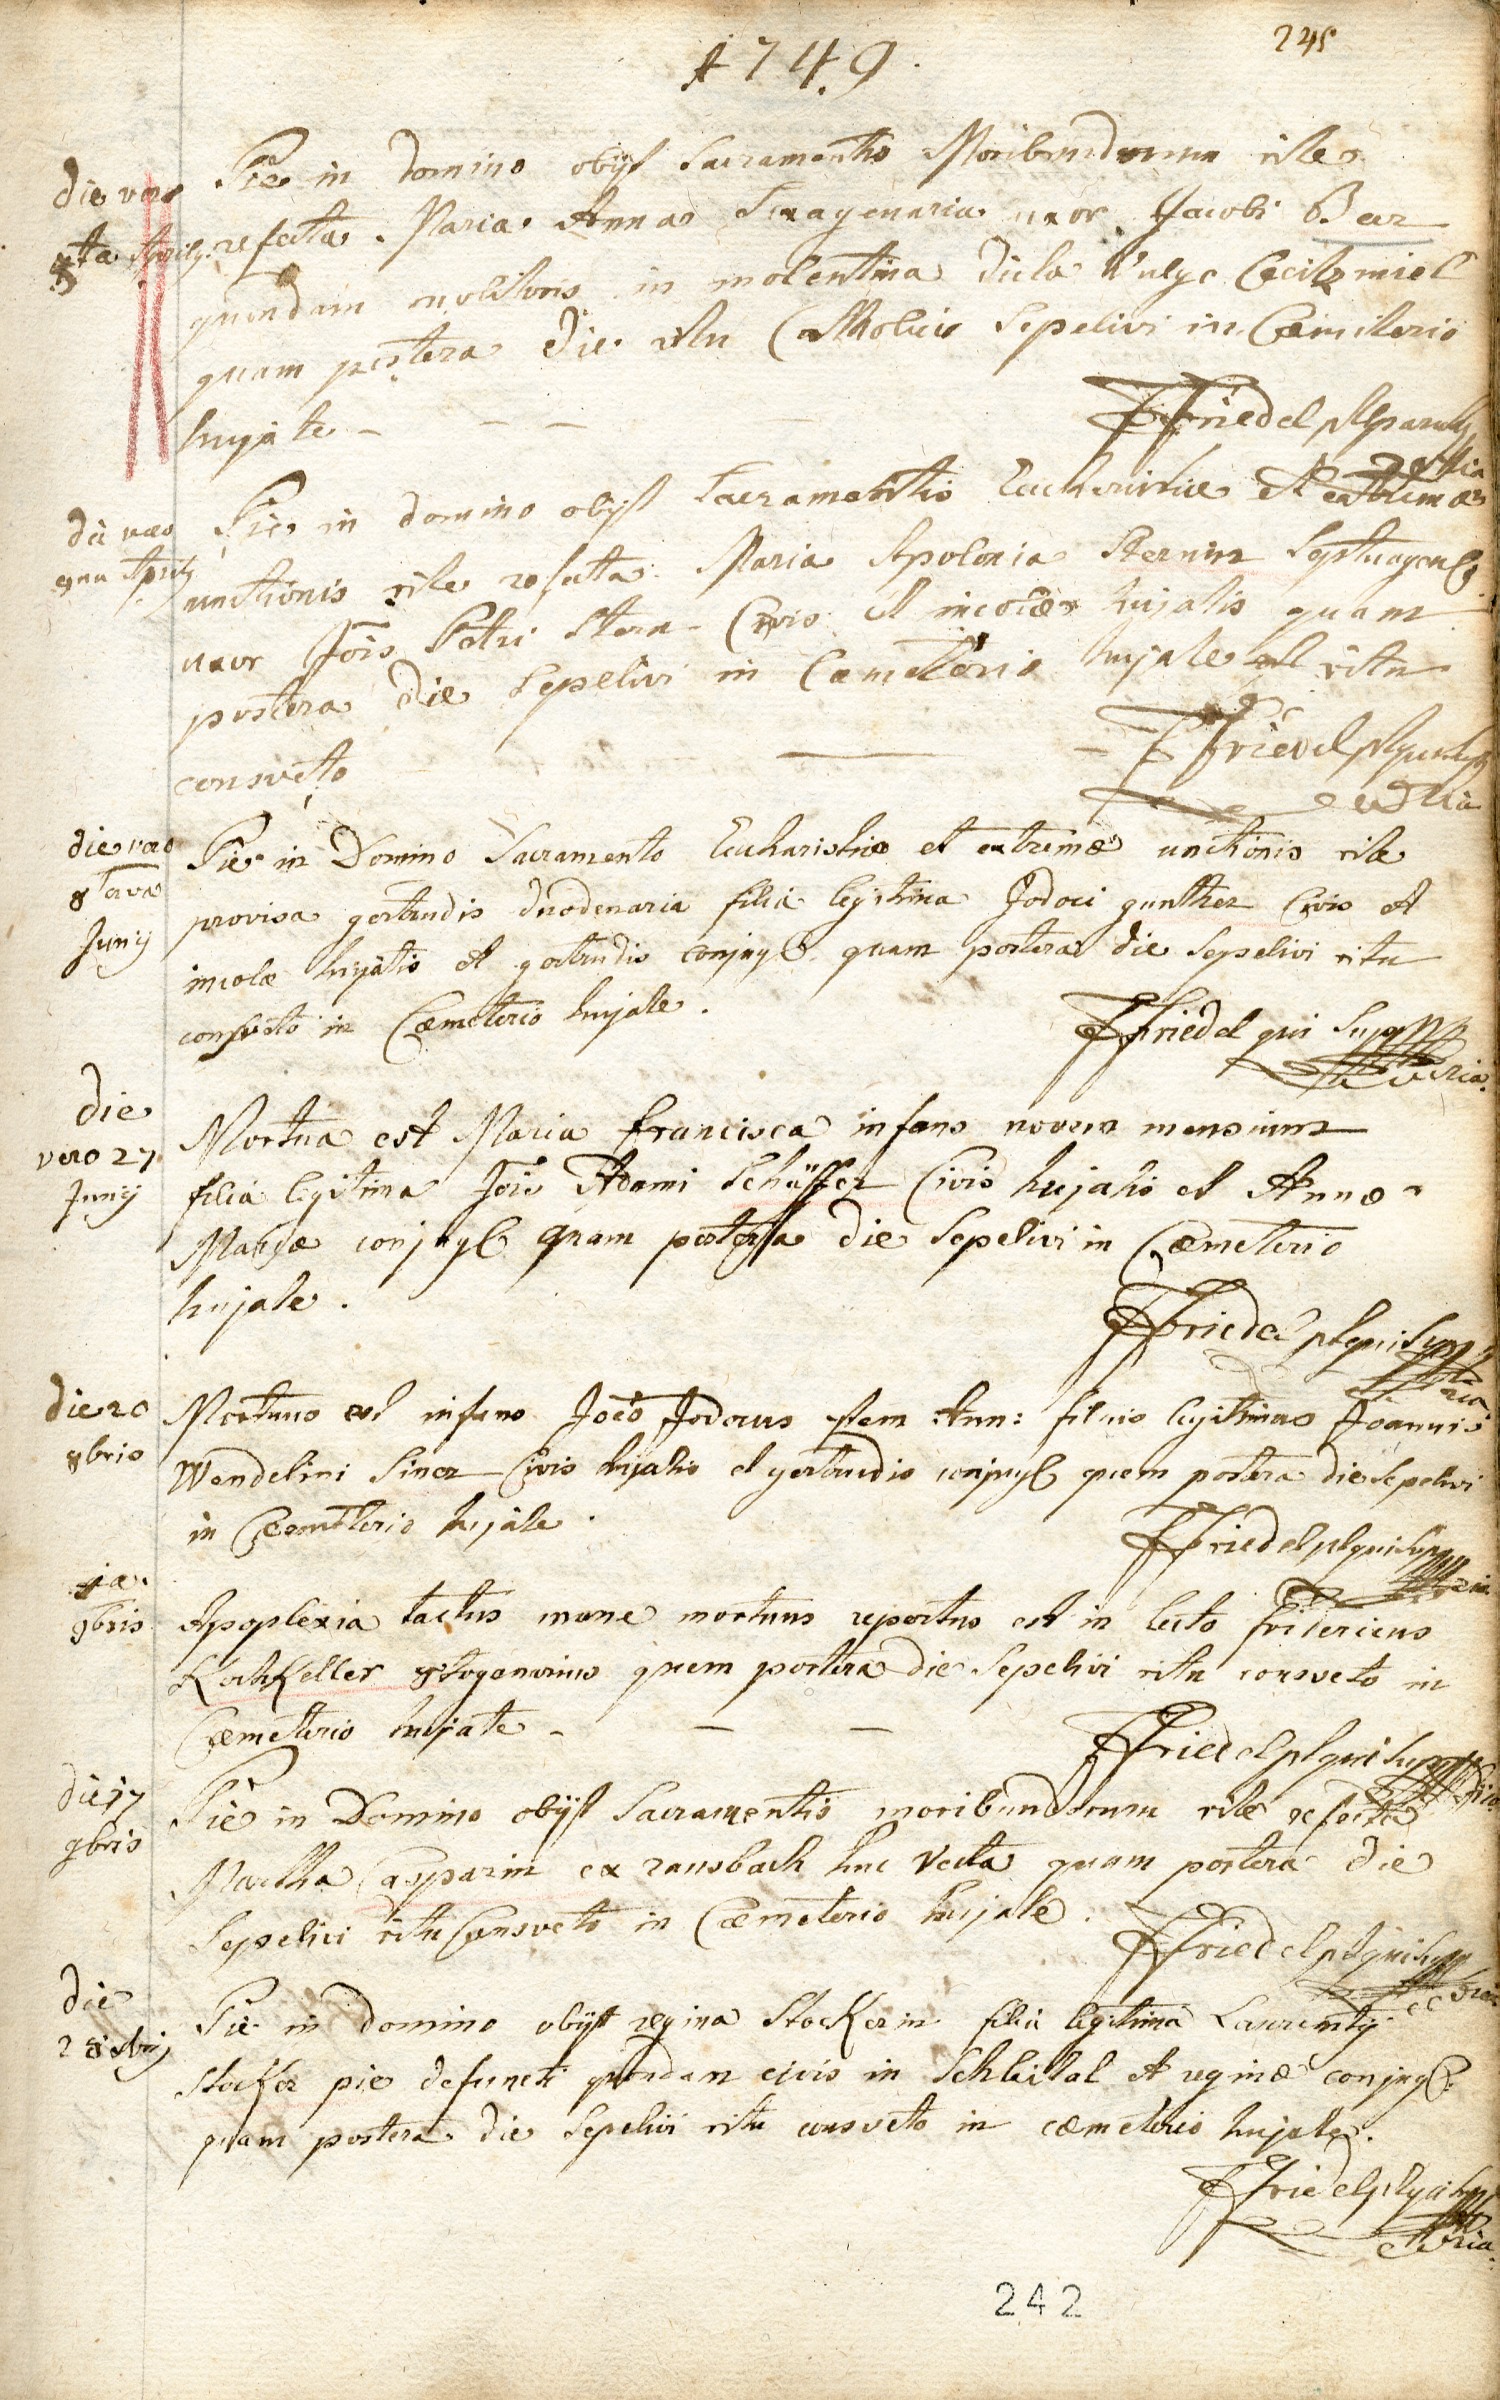 245
1749.
die vero
5ta Aprilis
Pie in Domino obijt Sacramentis Moribundorum rite
refecta Maria Anna Sexagenaria uxor Jacobi Bez
quondam molitoris in molentina dicta vulgo
quam postera die ritu Catholico Sepelivi in Cæmiterio
hujate - - -
FFriedel
die vero
9na Aprilis
Pie in domino obijt Sacramentis Eucharistiæ et extremæ
unctionis rite refecta Maria Apolonia Sternin Septuagen
uxor Jois Petri Stern Civis et incolæ hujatis quam
postera die Sepelivi in Cæmeterio hujate ritu
consveto
FFriedel
die vero
8tava
Junij
Pie in Domino Sacramento Eucharistiæ et extremæ unctionis rite
provisa gertrudis duodenaria filia legitima Jodoci gunther Civis et
incolæ hujatis et gertrudis conjug quam postera die Sepelivi ritu
consveto in Cæmeterio hujate.
FFriedel qui Supra
die
vero 27
Junij
Mortua est Maria francisca infans novem mensium
filia legitima Jois Adami Schäffer Civis hujatis et Annæ
Mariæ conjug quam postera die Sepelivi in Cæmeterio
hujate.
FFriedel pl qui Supra
die 20
8bris
Mortuus est infans Jodocus 7tem Ann: filius legitimus Joannis
Wendelini Siner Civis hujatis et gertrudis conjug quem postera die Sepelivi
in Cæmeterio hujate.
FFriedel pl qui Supra
9bris
Apoplexia tactus mane mortuus repertus est in lecto fridericus
KochKeller 8togenarius quem postera die Sepelivi ritu consveto in
Cæmeterio hujate - - -
FFriedel pl qui Supra
die 17
9bris
Pie in Domino obijt Sacramentis moribundorum rite refecta
Martha Casparin ex ransbach huc Vecta quam postera die
Sepelivi ritu Consveto in Cæmeterio hujate.
FFriedel pl qui Supra
die
Pie in domino obijt regina StocKerin filia legitima Laurentij
StocKer pie defuncti quondam civis in Schleital et reginæ conjug
quam postera die Sepelivi ritu consveto in cæmeterio hujate.
FFriedel pl qui Supra
242